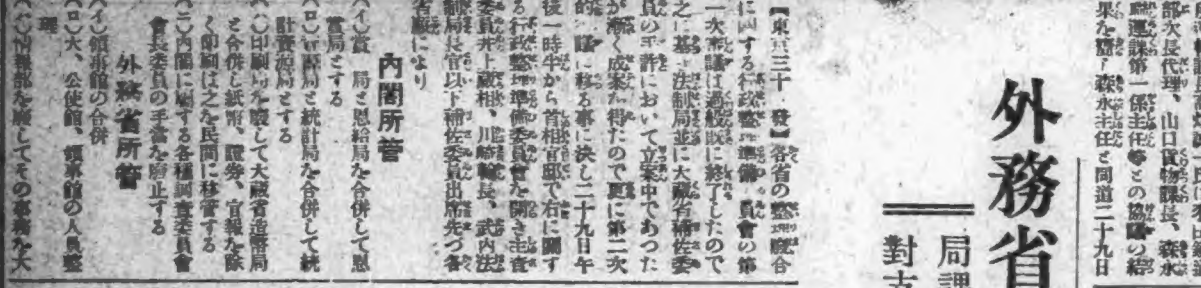 部次長代理、山口貨物課長、森永
運課第一係主任等との協議の結
果を齎し森永主任と同道二十九日
外務省
局課
對支
【東京三十 發】各省の整理廢合
に關する行政整理準備 員會の第
一次審議は過般既に終了したので
之 基 法制局並に大藏省補佐委
員の手許において立案中であつた
が漸く成案を得たので更に第二次
的 議に移る事に決し二十九日午
後一時半から首相官邸で右に關す
る行政整理準備委員會を開き主査
委員井上藏相、川崎 長、武内法
制局長官以下補佐委員出席先づ各
省 により
內閣所管
(イ)賞 局と恩給局を合併して恩
賞局とする
(ロ)資源局と統計局を合併して統
計資源局とする
(ハ)印刷局を廢して大藏省造幣局
と合併し紙幣、證券、官報を除
く印刷は之を民間に移管する
(ニ)內閣に屬する各種調査委員會
會長委員の手當を廢止する
外務省所管
(イ)領事館の合併
(ロ)大、公使館、領事館の人員整
理
(ハ)情報部を廢してその事務を大